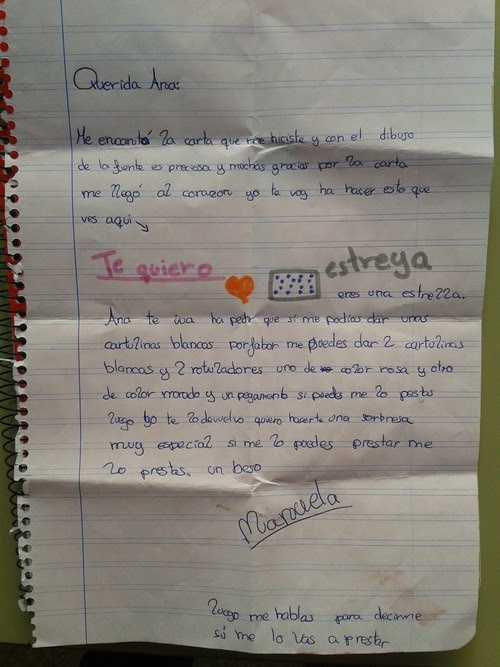 Querida Ana:
Me encantó la carta que me hiciste y con el dibujo
de la frente es preciosa y muchas gracias por la carta
me llegó al corazon yo te voy ha hacer esto que
ves aqui
Te quiero
estreya
eres una estrella.
Ana te iva ha pedir que si me podias dar unas
cartulinas blancas porfabor me puedes dar 2 cartulinas
blancas y 2 rotuladores uno de color rosa y otro
de color morado y un pegamento si puedes me lo pestas
luego yo te lo devuelvo quiero hacerte una sorbresa
muy especial si me lo puedes prestar me
lo prestas. un beso
Manuela
luego me hablas para decirme
si me lo vas a prestar